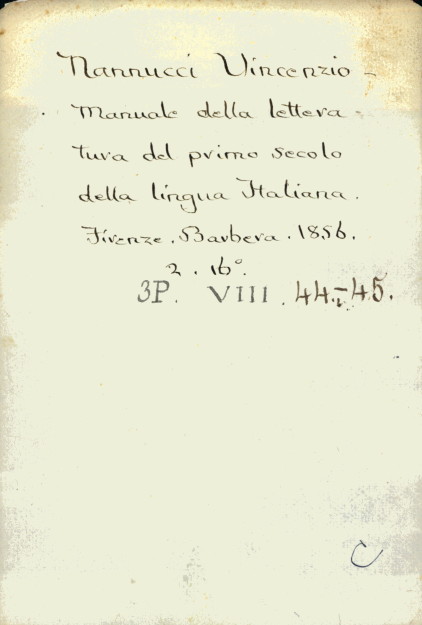 Nannucci Vincenzio –
Manuale della lettera =
tura del primo secolo
della lingua Italiana.
Firenze. Barbera. 1856.
2. 16°.
3P. VIII. 44.-45.
C